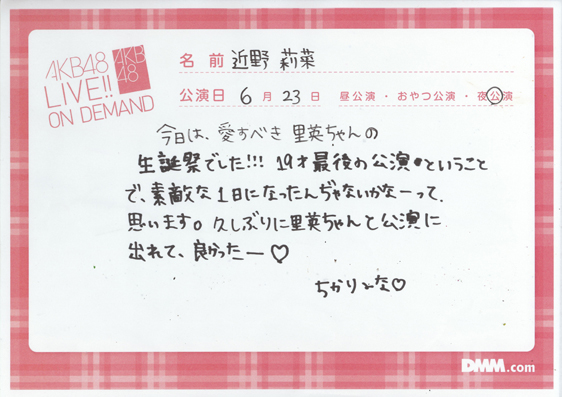 AKB48
LIVE!!
ON DEMAND
AKB
48
名 前 近野 莉菜
公演日 6 月 23 日 昼公演・おやつ公演・夜公演
今日は、愛すべき 里英ちゃんの
生誕祭でした!!! 19才最後の公演ということ
で、素敵な1日になったんぢゃないかなーって、
思います。久しぶりに里英ちゃんと公演に
出れて、良かったー♡
ちかりーな♡
DMM.com